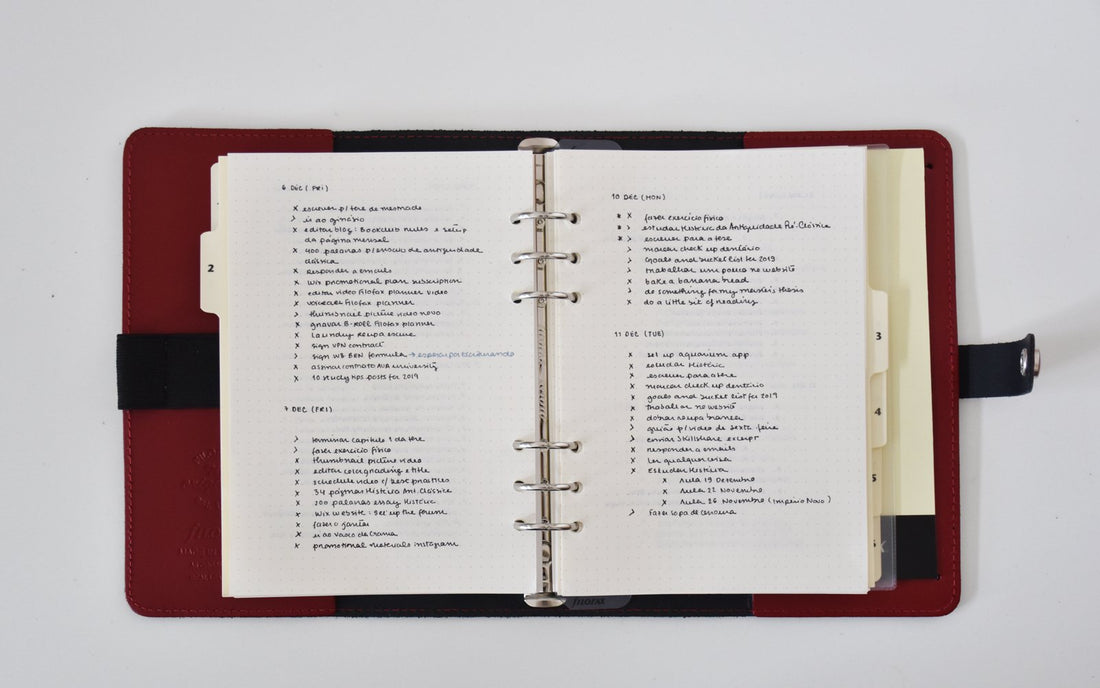 2
6 DEC (FRI)
x escrever p/ tese de mestrado
> ir ao ginásio
x editar blog: Bookclub rules e setup
da página mensal
x 400 palavras p/ ensaio de antiguidade
clássica
x Responder a emails
x wix promotional plan subscription
x editar video filofax planner video
x voiceover filofax planner
> thumbnail picture video novo
x gravar B-ROLL filofax planner
x laundry roupa escura
x sign VPN contract
> sign WE BEN formula →
x assinar contrato AVA university
x 10 study tips posts for 2019
7 DEC (FRI)
> terminar capítulo 1 da tese
> fazer exercício físico
x thumbnail picture video
x editar colorgrading e title
x schedule video c/ best practices
x 34 páginas História Ant. Clássica
x 200 palavras essay História
x wix website: set up the forum
x fazer o jantar
x ir ao Vasco da Gama
x promotional materials instagram
10 DEC (MON)
* x fazer exercício físico
* > estudar História da Antiguidade Pré-Clássica
* > escrever para a tese
> marcar check up dentário
> Goals and bucket list for 2019
> trabalhar um pouco no website
x bake a banana bread
> do something for my master's thesis
x do a little bit of reading
11 DEC (TUE)
x set up aquarium app
x estudar História
x escrever para a tese
x marcar check up dentário
x goals and bucket list for 2019
x trabalhar no website
x dobrar roupa branca
> guião p/ video de sexta feira
> enviar skillshare excerpt
x responder a emails
x ler qualquer coisa
x Estudar História
x Aula 19 Dezembro
x Aula 22 Novembro
x Aula 26 Novembro (Império Novo)
> Fazer sopa de cenoura
3
4
5
6
filofax